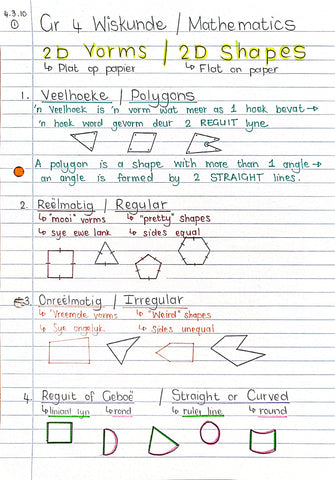 4.3.10
①
Gr 4 Wiskunde / Mathematics
2D Vorms / 2D Shapes
↳ Plat op papier ↳ Flat on paper
1. Veelhoeke / Polygons
'n Veelhoek is 'n vorm wat meer as 1 hoek bevat →
'n hoek word gevorm deur 2 REGUIT lyne.
A polygon is a shape with more than 1 angle →
an angle is formed by 2 STRAIGHT lines.
2. Reëlmatig / Regular
↳ "mooi" vorms ↳ "pretty" shapes
↳ sye ewe lank ↳ sides equal
3. Onreëlmatig / Irregular
↳ "Vreemde vorms ↳ "Weird" shapes
↳ Sye ongelyk ↳ Sides unequal
4. Reguit of Geboë / Straight or Curved
↳ liniaal lyn ↳ rond ↳ ruler line ↳ round